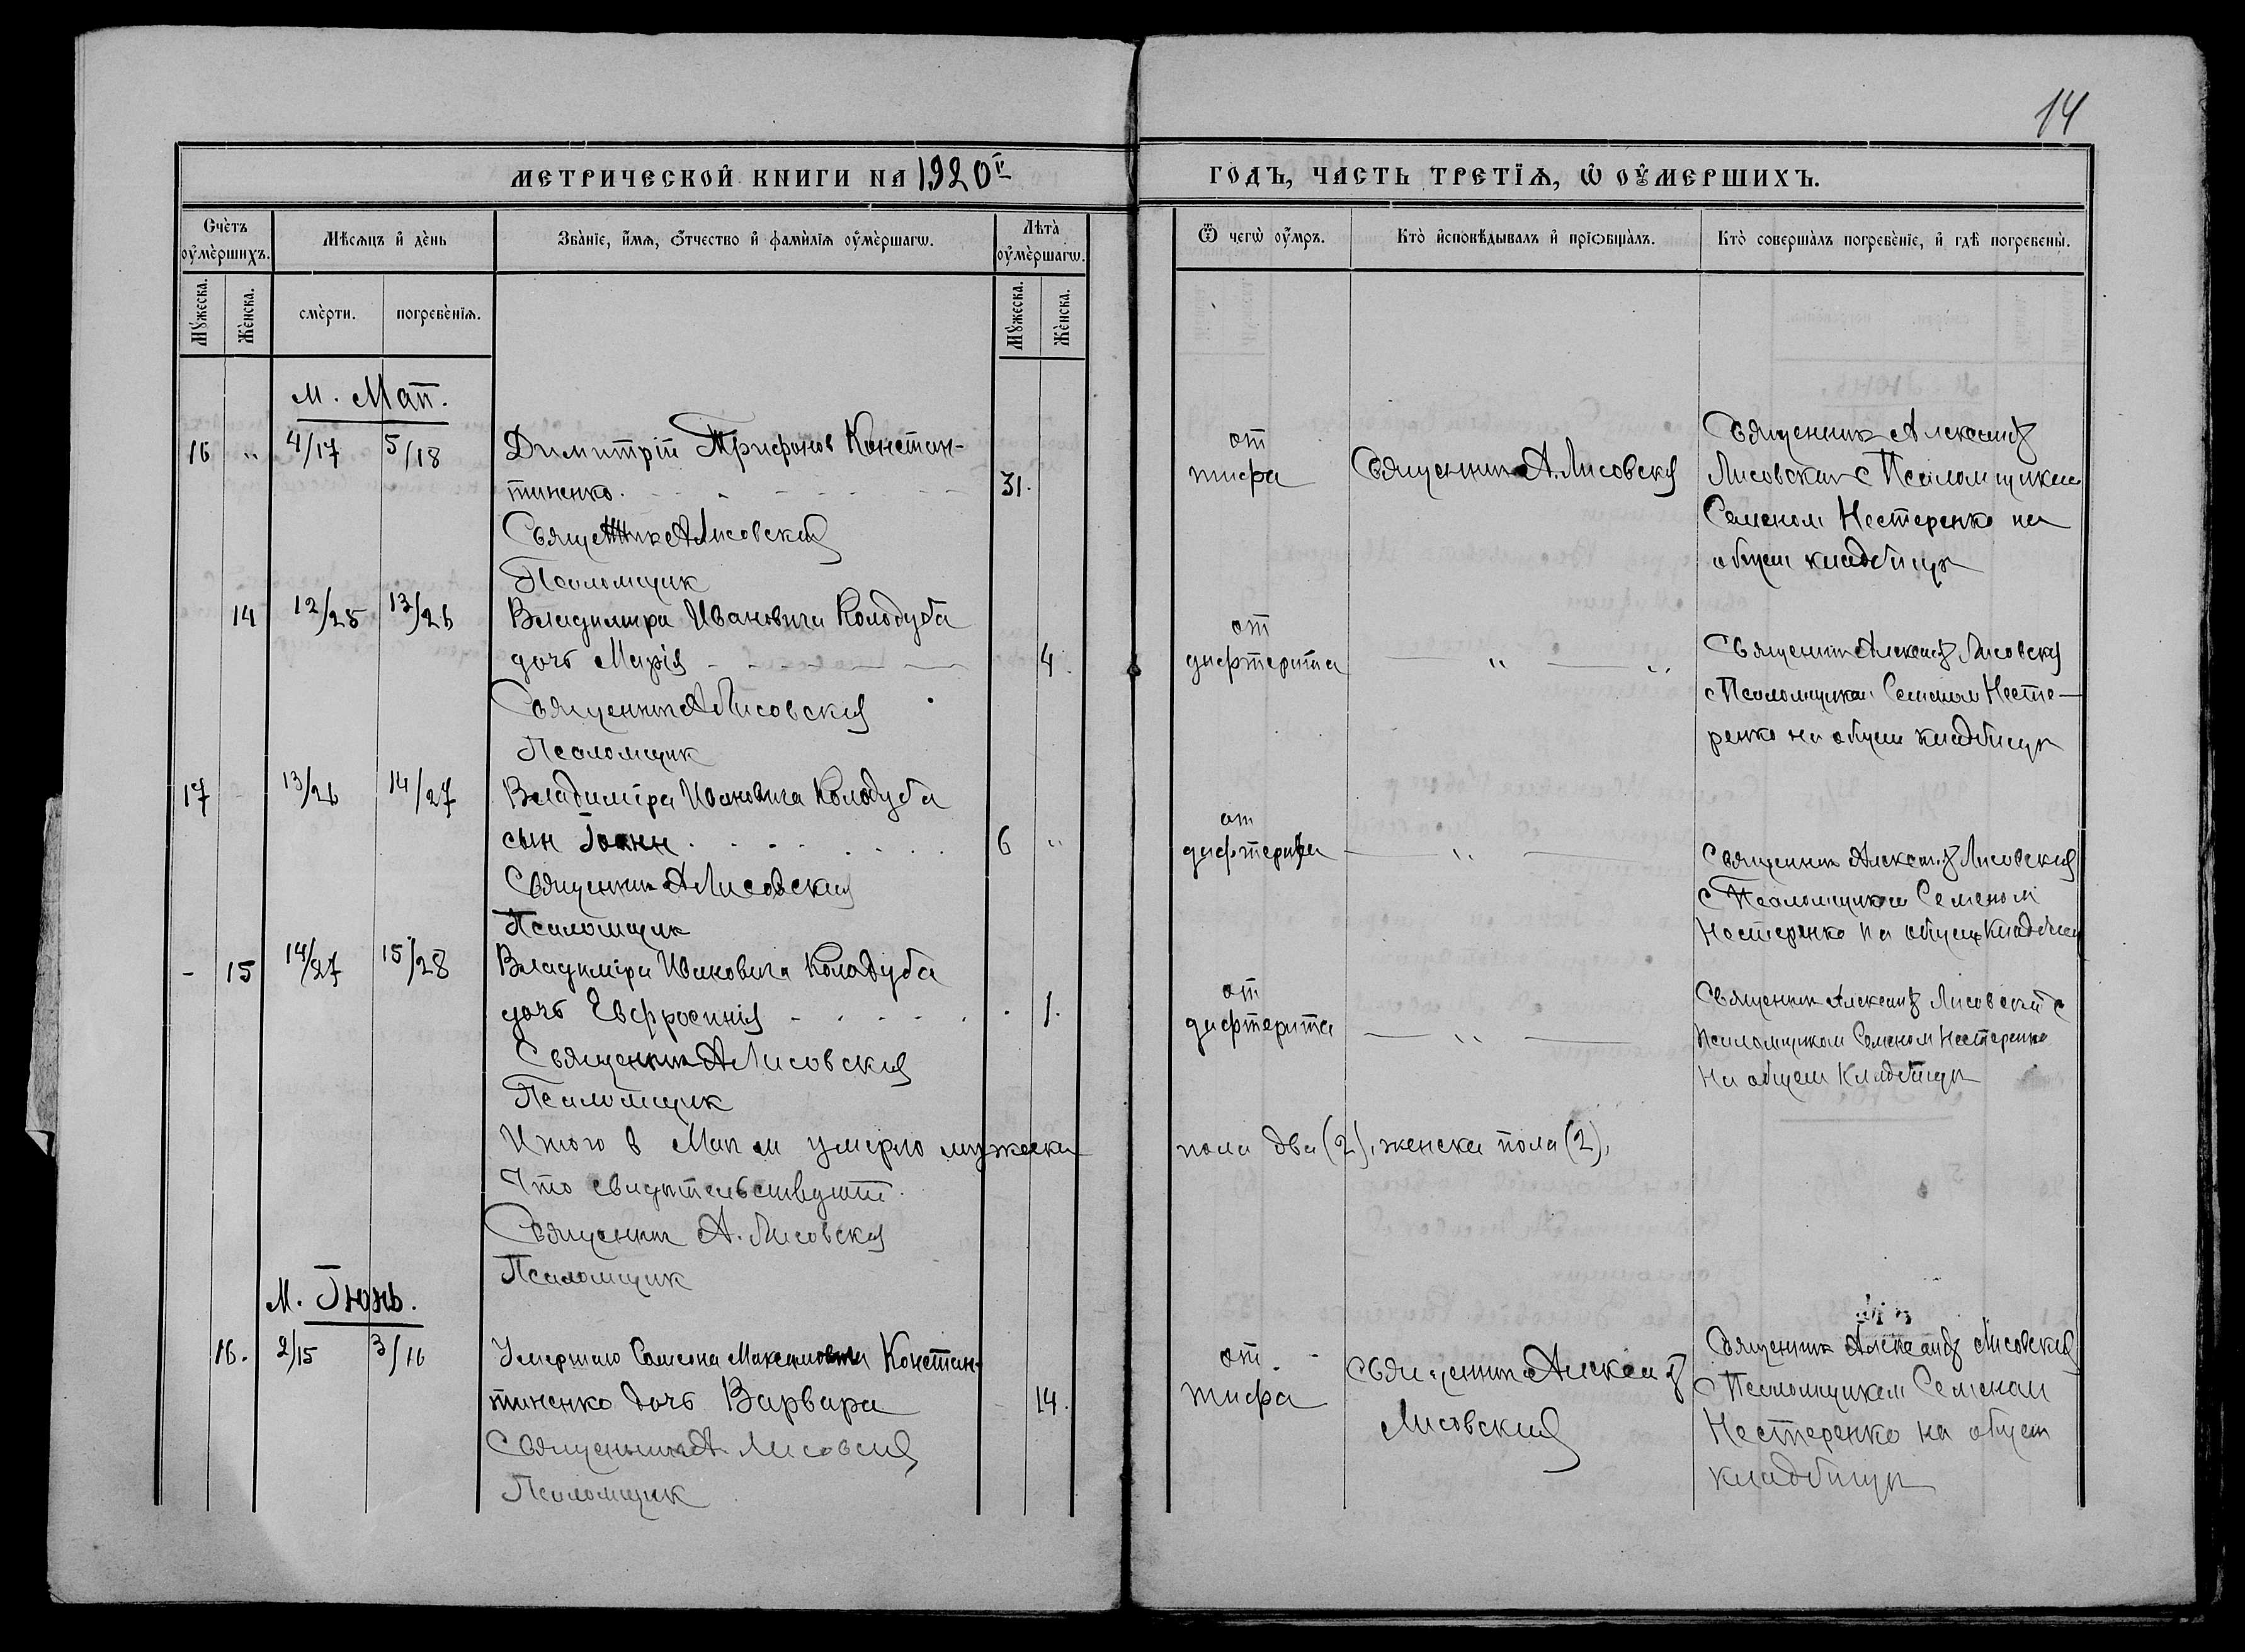 14
МЕТРИЧЕСКОЙ КНИГИ НА 1920й ГОДЪ, ЧАСТЬ ТРЕТІѦ, Ѡ ОУМЕРШИХЪ.
Счетъ оумершихъ.
Мѣсѧцъ и день
Званіе, имѧ, отчество и фамиліѧ оумершагѡ.
Лѣта оумершагѡ.
Ѿ чегѡ оумръ.
Кто исповѣдывалъ и пріобщалъ.
Кто совершалъ погребеніе, и гдѣ погребены.
Мужеска.
Женска.
смерти.
погребеніѧ.
Мужеска.
Женска.
м. Май.
16 " 4/17 5/18 Димитрій Трифонов Констан-
тиненко. 31.
Священник А Лисовский
Псаломщик
от
тифа
Священник А. Лисовский
Священник Александр
Лисовский с Псаломщиком
Семеном Нестеренко на
общем кладбищѣ
14 12/25 13/26 Владимира Ивановича Колодуба
дочь Марія 4.
Священник А Лисовский
Псаломщик
от
дифтерита
— " — "
Священник Александр Лисовский
с Псаломщиком Семеном Несте-
ренко на общем кладбищѣ
17 - 13/26 14/27 Владиміра Ивановича Колодуба
сын Іоанн. 6 "
Священник А Лисовский
Псаломщик
от
дифтерита
— " —
Священник Александр Лисовский
с Псаломщиком Семеном
Нестеренко на общем кладбищѣ
- 15 14/27 15/28 Владиміра Ивановича Колодуба
дочь Евфросинія 1.
Священник А Лисовский
Псаломщик
от
дифтерита
— " —
Священник Александр Лисовский с
Псаломщиком Семеном Нестеренко
на общем кладбищѣ
Итого в Маѣ м умерло мужеска пола два (2), женска пола (2),
Что свидѣтельствуют
Священник А. Лисовский
Псаломщик
м. Іюнь.
16. 2/15 3/16 Умершаго Семена Максимовича Констан-
тиненко дочь Варвара - 14.
Священник А Лисовский
Псаломщик
от
тифа
Священник Александр
Лисовский
Священник Александр Лисовский
с Псаломщиком Семеном
Нестеренко на общем
кладбищѣ